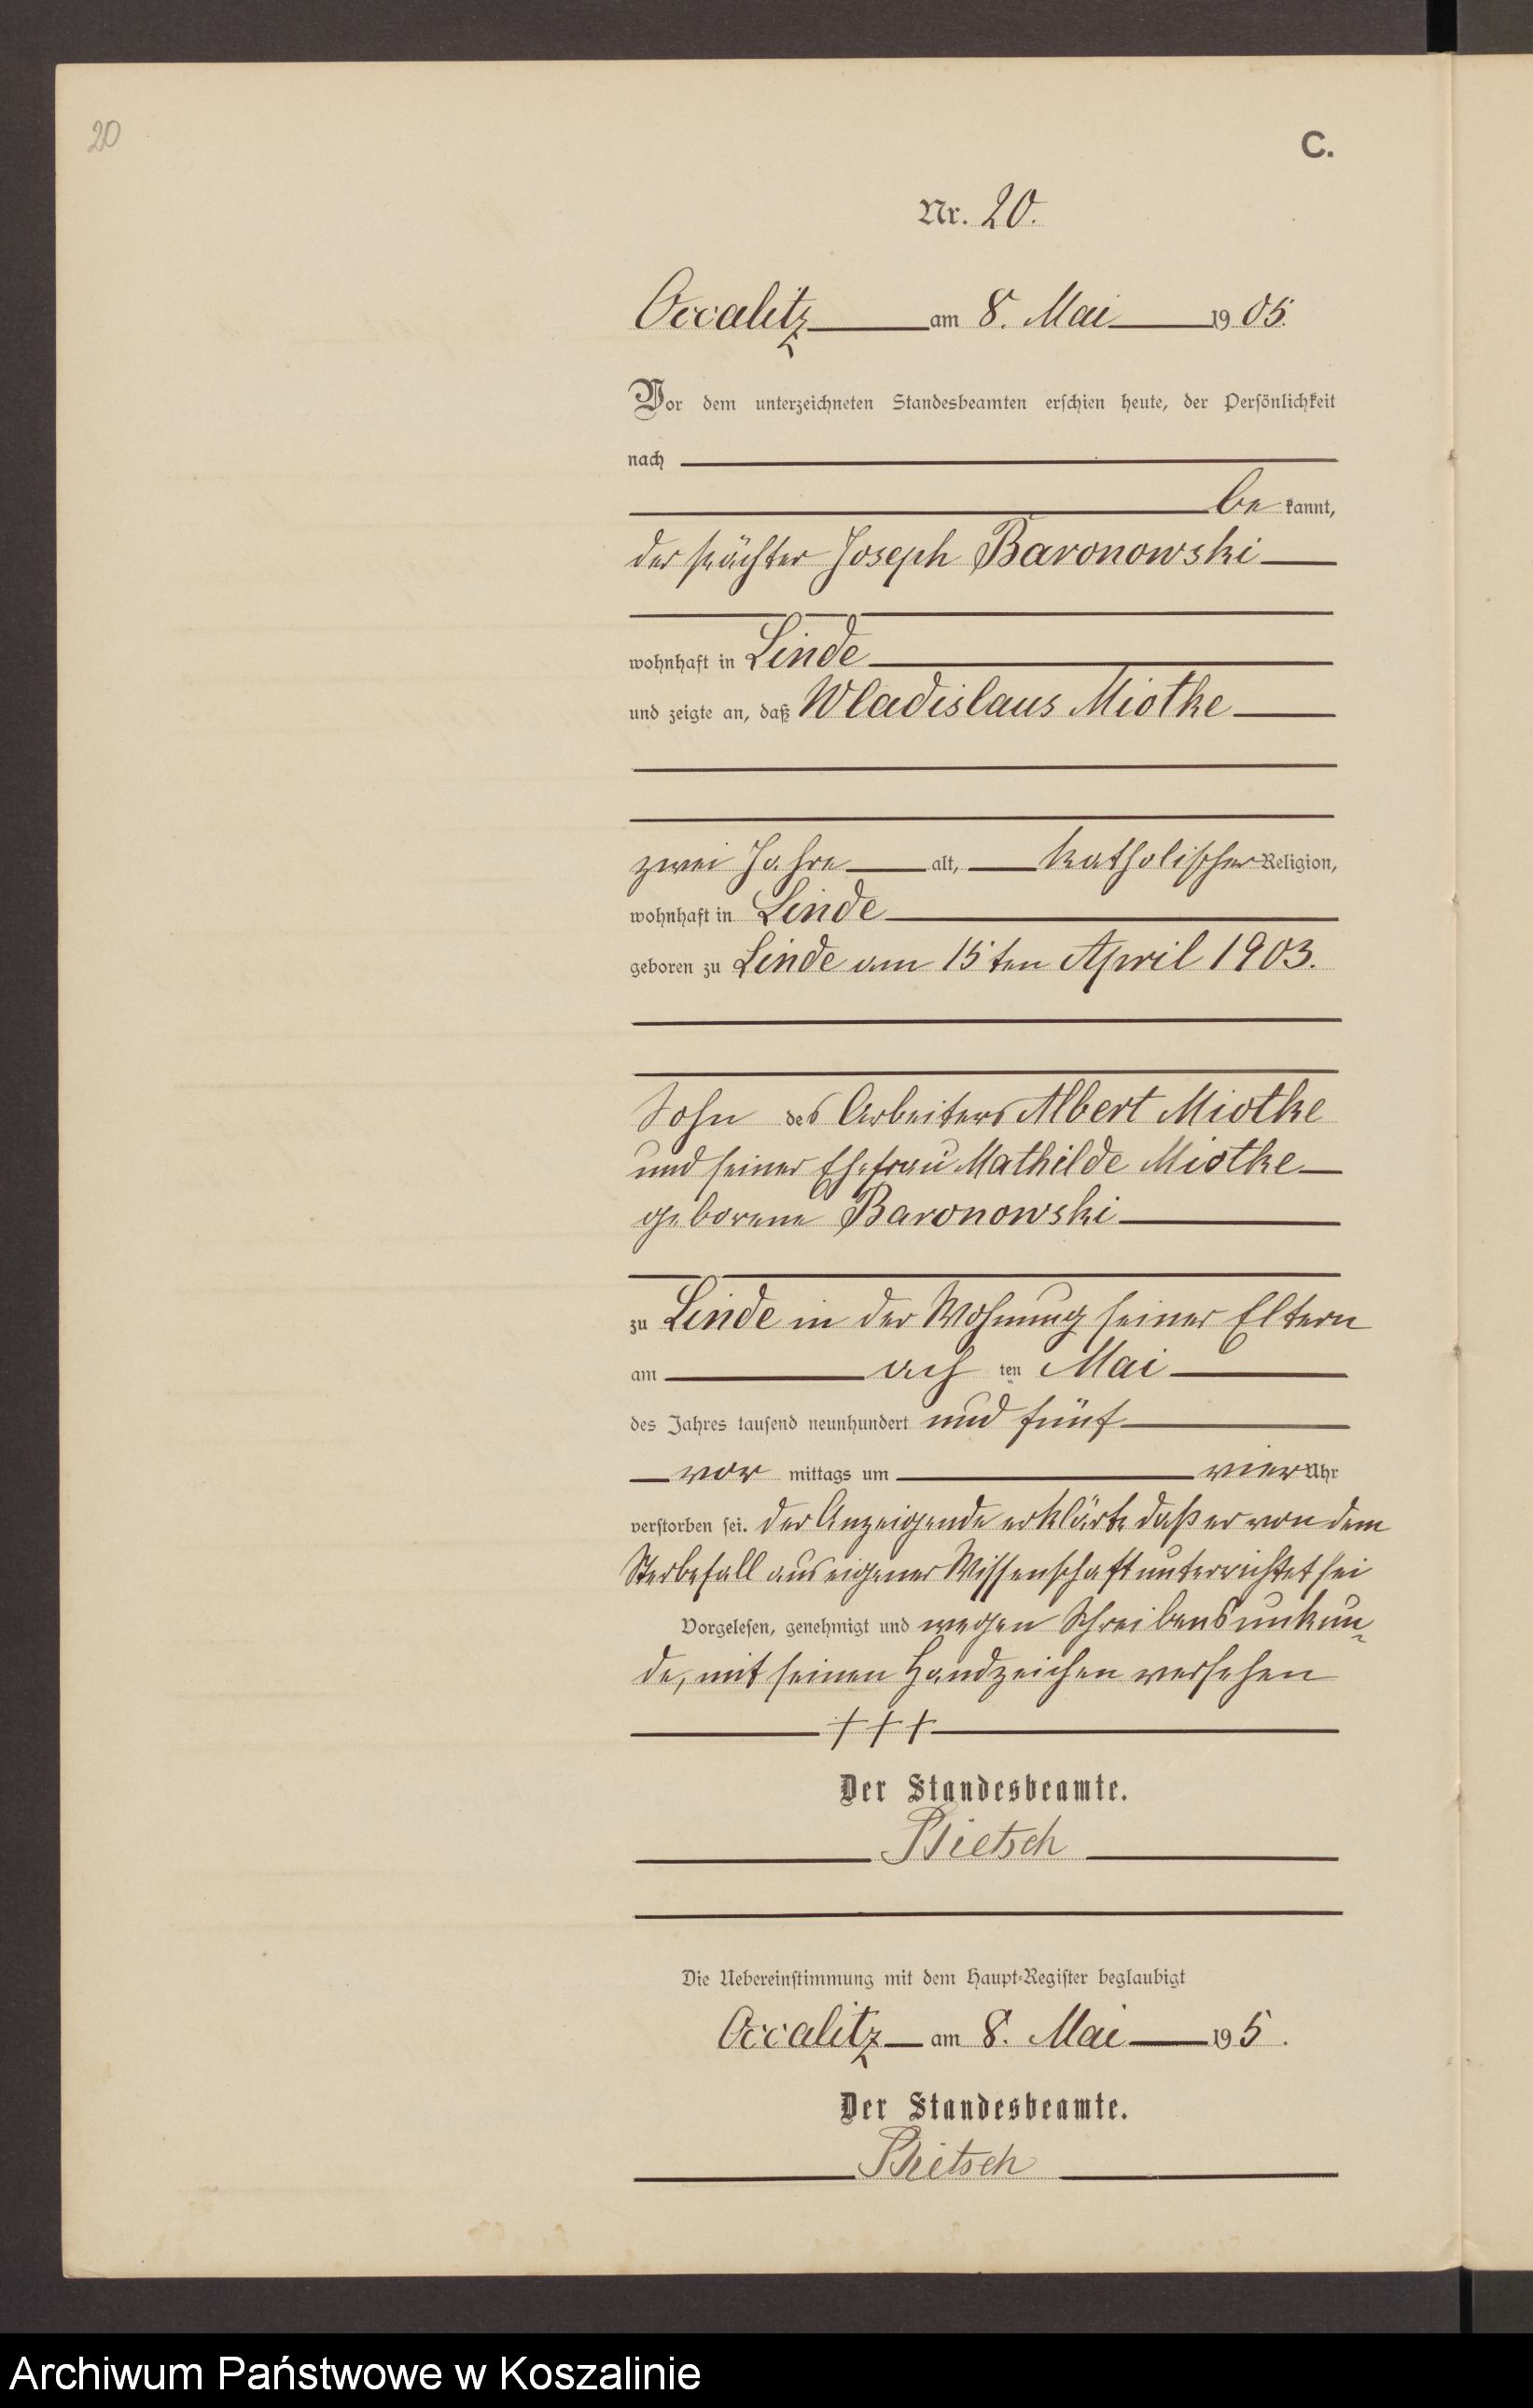 20
C.
Nr. 20.
Occalitz am 8. Mai 1905.
Vor dem unterzeichneten Standesbeamten erschien heute, der Persönlichkeit
nach
be kannt,
der Pächter Joseph Baronowski
wohnhaft in Linde
und zeigte an, daß Wladislaus Miotke
zwei Jahre alt, katholischer Religion,
wohnhaft in Linde
geboren zu Linde am 15ten April 1903.
Sohn des Arbeiters Albert Miotke
und seiner Ehefrau Mathilde Miotke
geborene Baronowski
zu Linde in der Wohnung seiner Eltern
am ach ten Mai
des Jahres tausend neunhundert und fünf
vor mittags um vier Uhr
verstorben sei. Der Anzeigende erklärte daß er von dem
Sterbefall aus eigener Wissenschaft unterrichtet sei
Vorgelesen, genehmigt und wegen Schreibensunkun-
de, mit seinen Handzeichen versehen
+++
Der Standesbeamte.
Die Uebereinstimmung mit dem Haupt-Register beglaubigt
Occalitz am 8. Mai 195.
Der Standesbeamte.
Archiwum Państwowe w Koszalinie